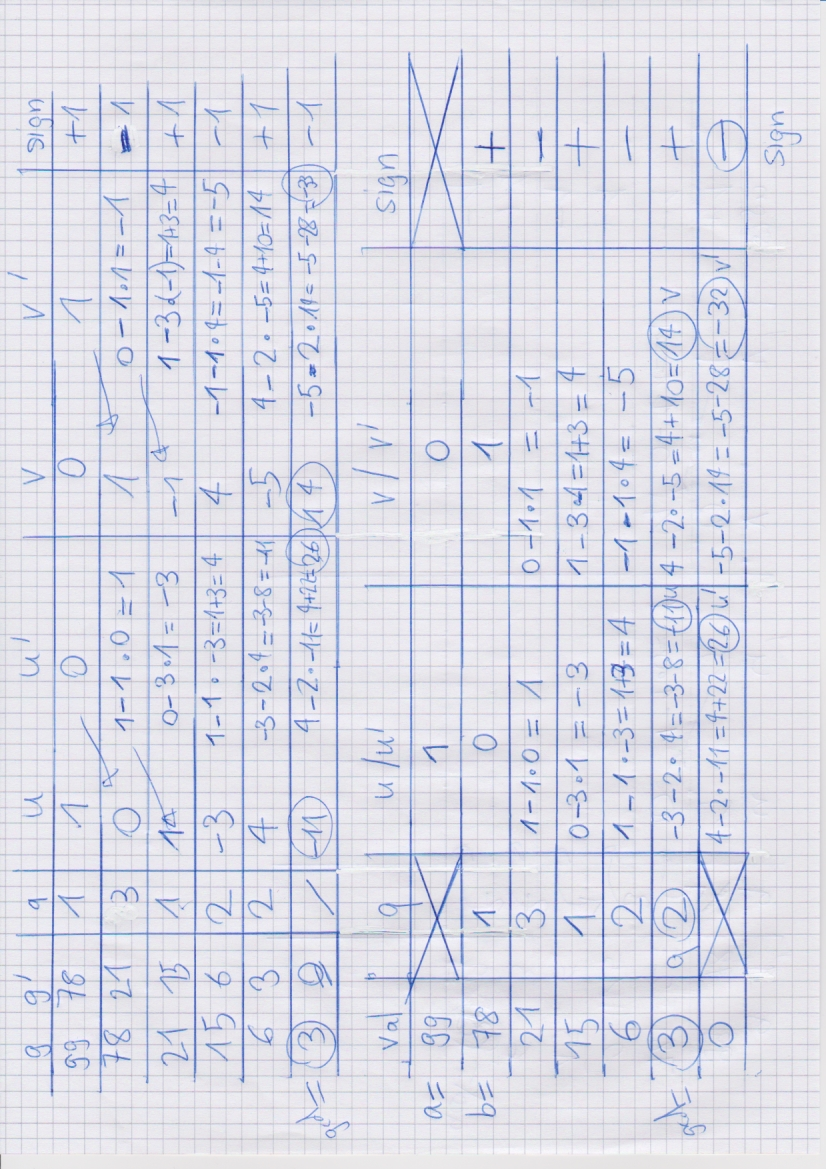 g g' q u u' v v' sign
99 78 1 1 0 0 1 +1
78 21 3 0 1-1·0=1 1 0-1·1=-1 -1
21 15 1 1 0-3·1=-3 -1 1-3·(-1)=1+3=4 +1
15 6 2 -3 1-1·-3=1+3=4 4 -1-1·4=-1-4=-5 -1
6 3 2 4 -3-2·4=-3-8=-11 -5 4-2·-5=4+10=14 +1
3 0 / -11 4-2·-11=4+22=26 14 -5-2·14=-5-28=-33 -1
Val q u/u' v/v' sign
a= 99 1 0
b= 78 1 0 1 +
21 3 1-1·0=1 0-1·1=-1 -
15 1 0-3·1=-3 1-3·-1=1+3=4 +
6 2 1-1·-3=1+3=4 -1-1·4=-5 -
3 q 2 -3-2·4=-3-8=-11 u 4-2·-5=4+10=14 v +
0 4-2·-11=4+22=26 u' -5-2·14=-5-28=-32 v' -
sign